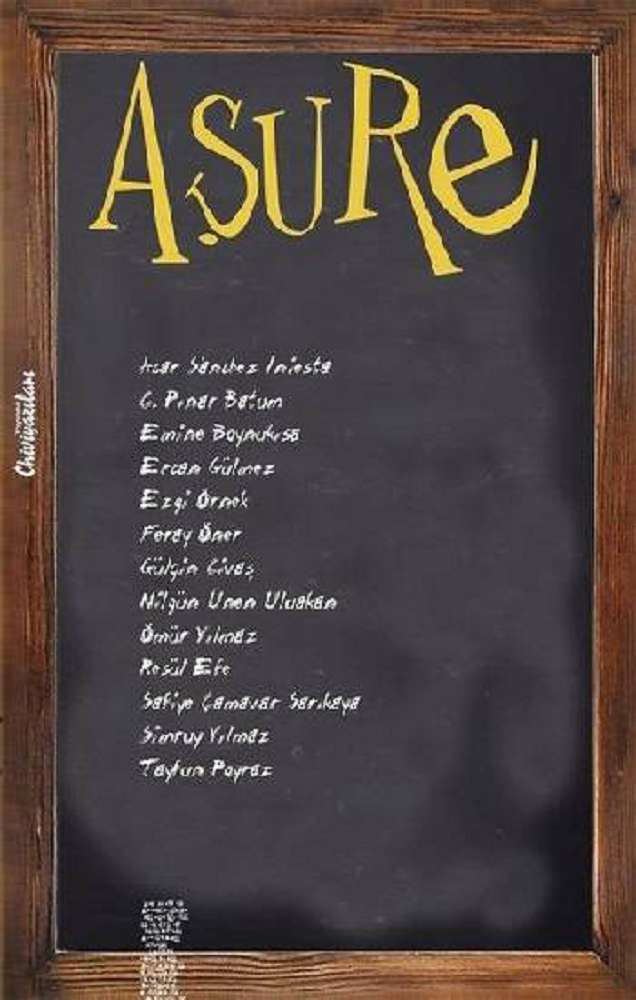 AŞURe
Acar Sánchez Iniesta
G. Pınar Batum
Emine Boynukısa
Ercan Gülmez
Ezgi Örnek
Feray Öner
Gülçin Sivaş
Nilgün Unan Uluakan
Ömür Yılmaz
Resül Efe
Safiye Çamavar Sarıkaya
Simruy Yılmaz
Tayfun Poyraz
Chiviyazıları